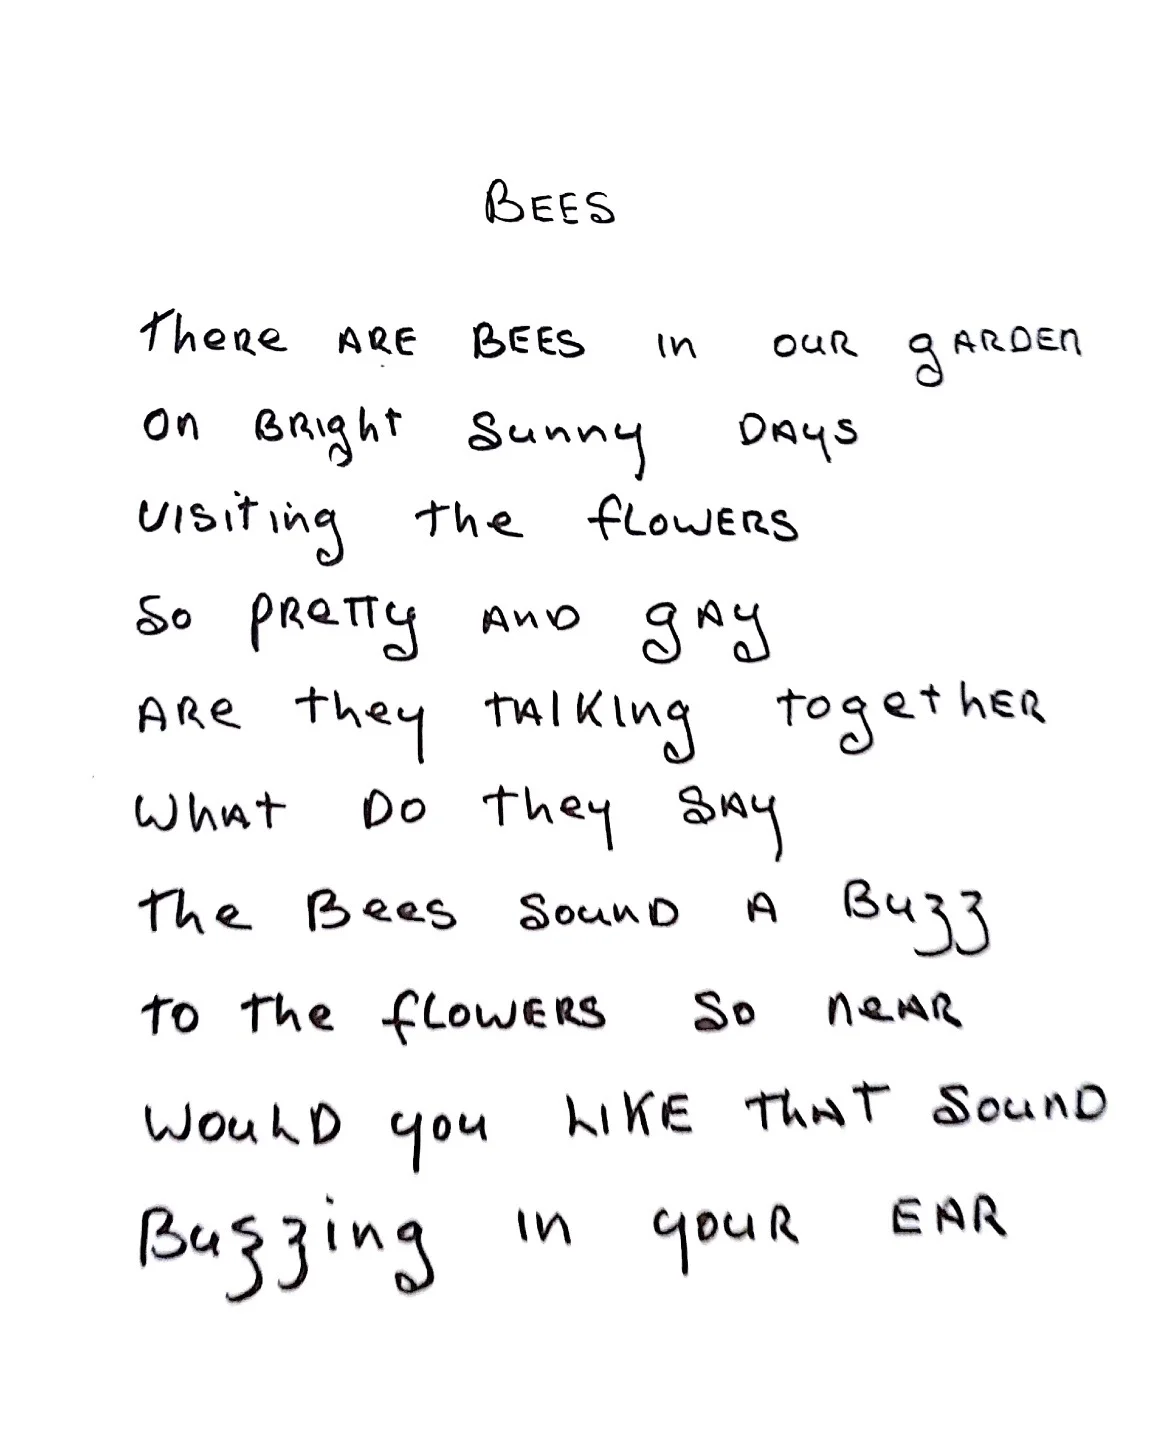 BEES
There ARE BEES in OUR gARDEn
On BRight Sunny DAys
visiting the fLOWERS
So pRetty AnD gAy
ARe they tAlKing togethER
WhAt DO they SAy
the Bees SounD A Buzz
to the fLOWERS So neAR
WouLD you LIKE ThAT SounD
Buzzing in youR EAR